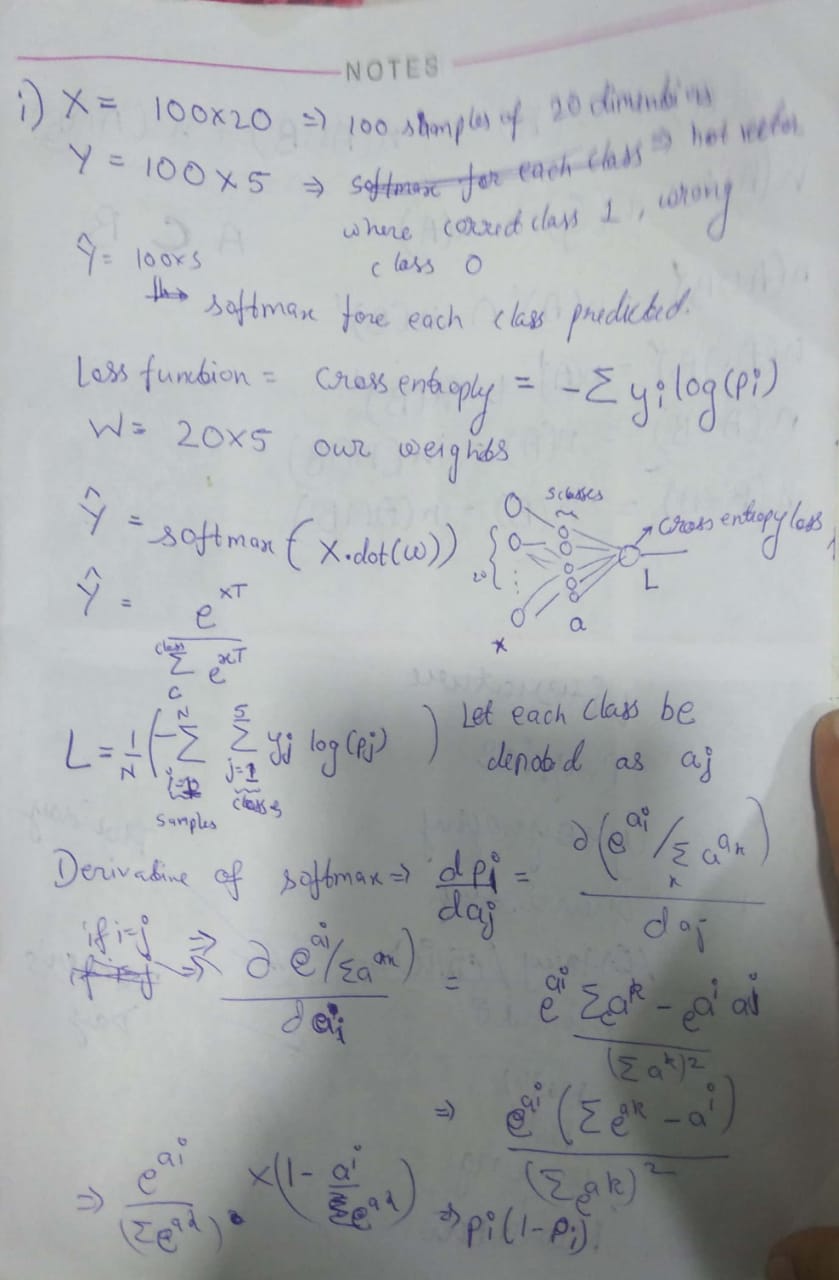 NOTES
i) X = 100x20 => 100 samples of 20 dimensions
Y = 100 x 5 => softmax for each class => hot vector
where correct class 1, wrong
class 0
Ŷ = 100x5
softmax fore each class predicted.
Loss function = Cross entroply = -Σ yi log(pi)
W = 20x5 our weights
Ŷ = softmax(X.dot(w))
5 classes
cross entropy loss
w
L
x
a
Ŷ = e^xT / Σ e^xT
class
c
L = 1/N (-Σ Σ yj log(pj)) Let each class be
N 5
j=1
samples
classes
denoted as aj
Derivative of softmax => dpi/daj = ∂(e^ai / Σ a^ak) / daj
k
if i=j => ∂ e^ai/Σa^ak) / ∂ai = e^ai Σe^ak - e^ai ai / (Σ a^k)²
=> e^ai (Σ e^ak - a^i) / (Σ e^ak)²
=> e^ai / (Σ e^ad) . x(1 - a^i / Σe^ad) => pi(1-pi)